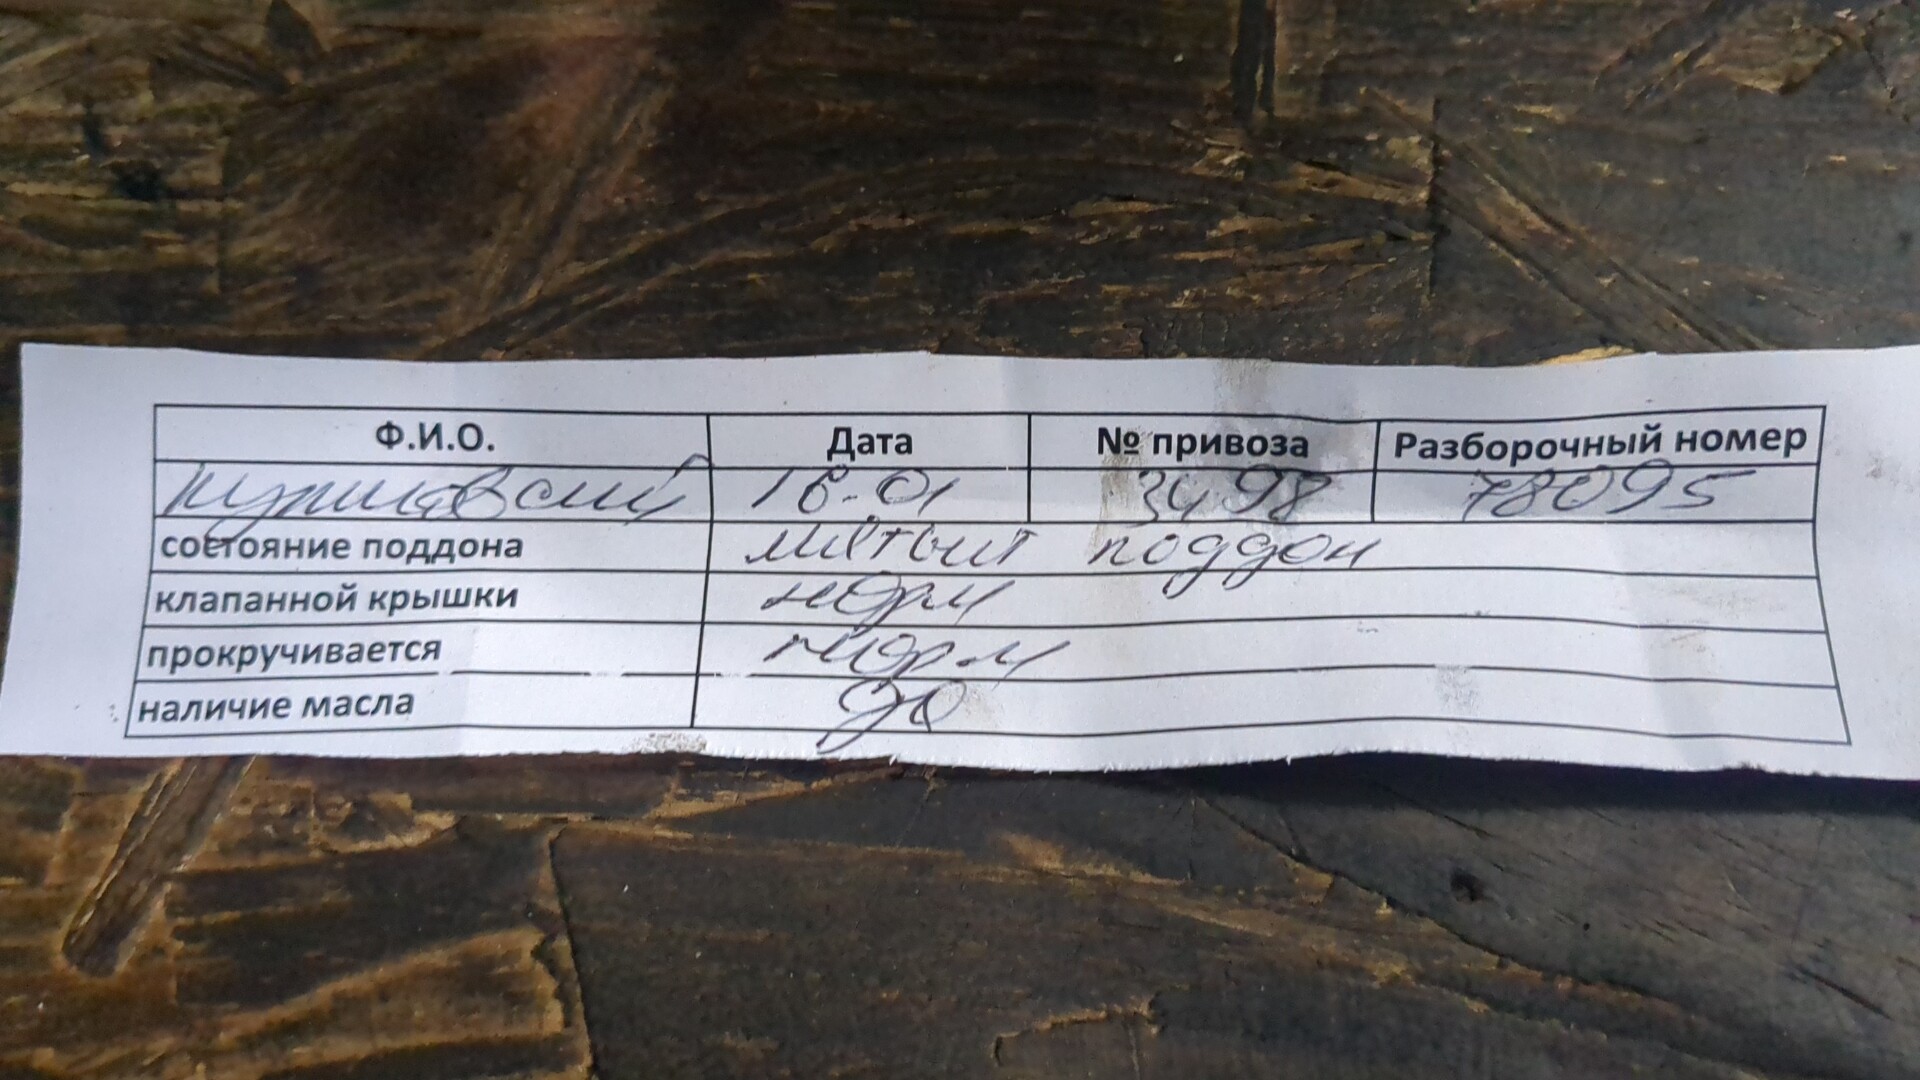 Ф.И.О. Дата № привоза Разборочный номер
16-01 3498 78095
состояние поддона мятый поддон
клапанной крышки норм
прокручивается норм
наличие масла да